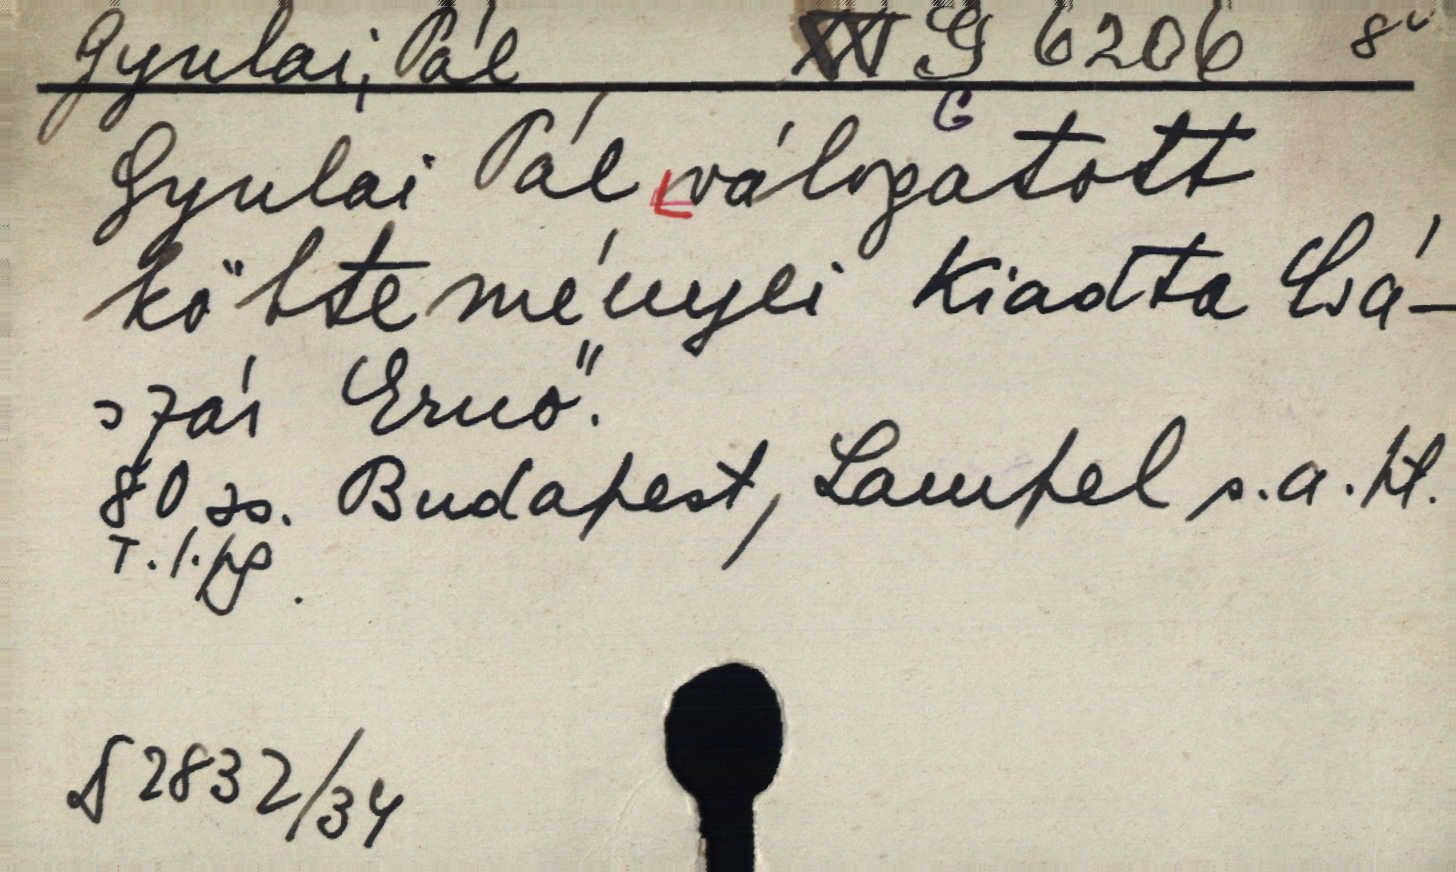 Gyulai, Pál G 6206 8°
G
Gyulai Pál válogatott
költeményei Kiadta Csá-
szár Ernő.
80 s. Budapest, Lampel s. a. Kl.
T. 1. pg.
2832/34